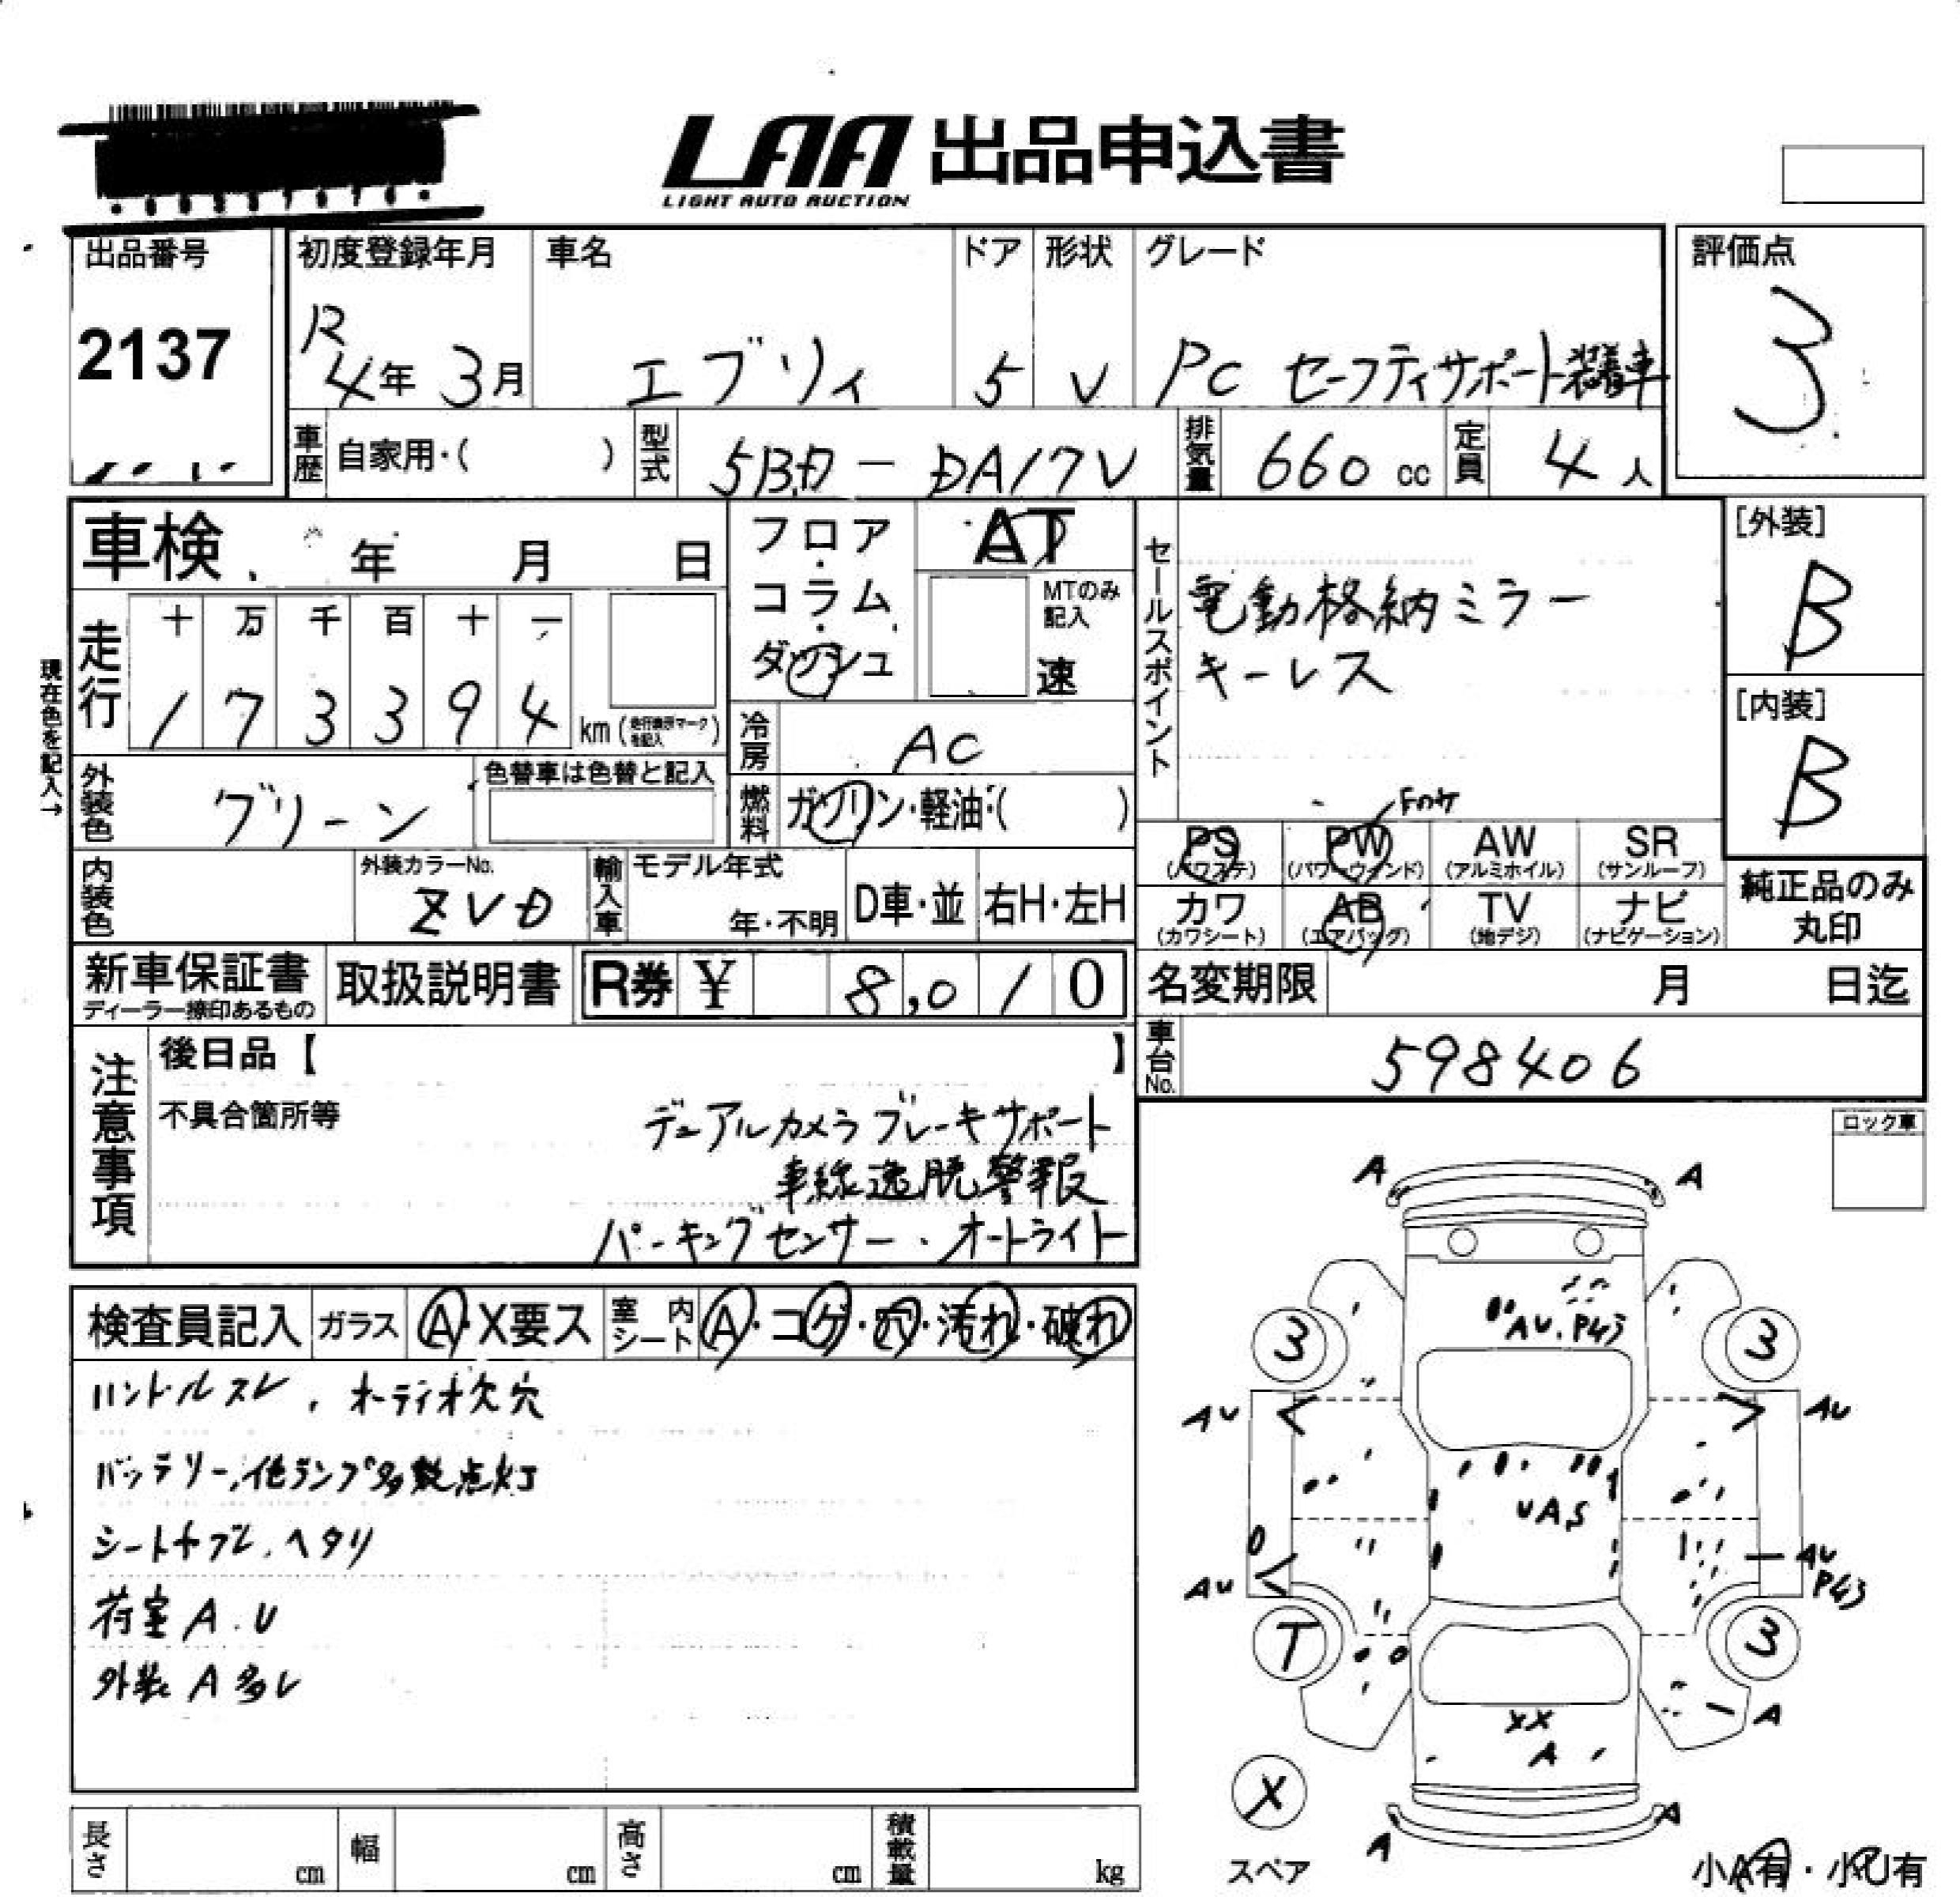 LAA 出品申込書
LIGHT AUTO AUCTION
出品番号
2137
初度登録年月
R
4年 3月
車名
エブリィ
ドア
5
形状
V
グレード
PC セーフティサポート装着車
評価点
3
車歴 自家用・( )
型式 5BD-DA17V
排気量 660 cc
定員 4 人
車検 年 月 日
フロア・コラム・ダッシュ
AT
MTのみ記入
速
セールスポイント
電動格納ミラー
キーレス
[外装]
B
[内装]
B
現在色を記入→
走行
十 万 千 百 十 一
1 7 3 3 9 4
km (走行表示マークを記入)
冷房 AC
外装色 グリーン
色替車は色替と記入
燃料 ガソリン・軽油・( )
Fのみ
PS (パワステ)
PW (パワーウィンド)
AW (アルミホイル)
SR (サンルーフ)
カワ (カワシート)
AB (エアバッグ)
TV (地デジ)
ナビ (ナビゲーション)
純正品のみ
丸印
内装色
外装カラーNo.
ZVD
輸入車
モデル年式
年・不明
D車・並
右H・左H
新車保証書
ディーラー捺印あるもの
取扱説明書
R券 ¥ 8,010
名変期限 月 日迄
車台No. 598406
注意事項
後日品【 】
不具合箇所等
デュアルカメラブレーキサポート
車線逸脱警報
パーキングセンサー・オートライト
ロック車
検査員記入
ガラス A・X要ス
室内シート A・コゲ・穴・汚れ・破れ
ハンドルスレ、オーディオ欠穴
バッテリー、他ランプ多数点灯
シートヤブレ、ヘタリ
荷室A.U
外装A多し
A A
AU.P43
3 3
AU AU
UAS
AU
AU
P43
T 3
A
XX
A
X
スペア
A A
小A有・小U有
長さ cm
幅 cm
高さ cm
積載量 kg